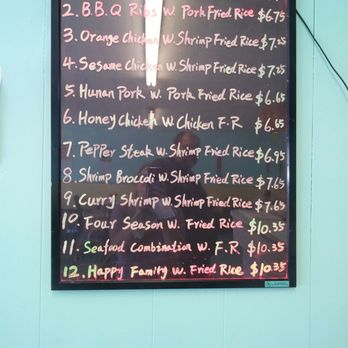 2. B.B.Q Ribs W. Pork Fried Rice $6.75
3. Orange Chicken W. Shrimp Fried Rice $7.25
4. Sesame Chicken W. Shrimp Fried Rice $7.25
5. Hunan Pork W. Pork Fried Rice $6.65
6. Honey Chicken W. Chicken F.R $6.65
7. Pepper Steak W. Shrimp Fried Rice $6.95
8. Shrimp Broccoli W. Shrimp Fried Rice $7.65
9. Curry Shrimp W. Shrimp Fried Rice $7.65
10. Four Season W. Fried Rice $10.35
11. Seafood Combination W. F.R $10.35
12. Happy Family W. Fried Rice $10.35